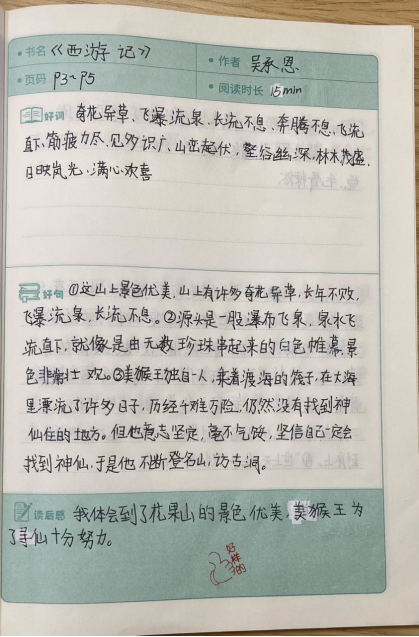 •书名《西游记》
•作者 吴承恩
•页码 P3~P5
•阅读时长 15min
好词 奇花异草、飞瀑流泉、长流不息、奔腾不息、飞流
直下、筋疲力尽、见多识广、山峦起伏、壑谷幽深、林木茂盛、
日映岚光、满心欢喜
好句 ①这山上景色优美，山上有许多奇花异草，长年不败，
飞瀑流泉，长流不息。②源头是一股瀑布飞泉，泉水飞
流直下，就像是由无数珍珠串起来的白色帷幕，景
色非常壮观。③美猴王独自一人，乘着渡海的筏子，在大海
里漂流了许多日子，历经千难万险，仍然没有找到神
仙住的地方。但他意志坚定，毫不气馁，坚信自己一定会
找到神仙，于是他不断登名山，访古洞。
读后感 我体会到了花果山的景色优美，美猴王为
了寻仙十分努力。
好样的